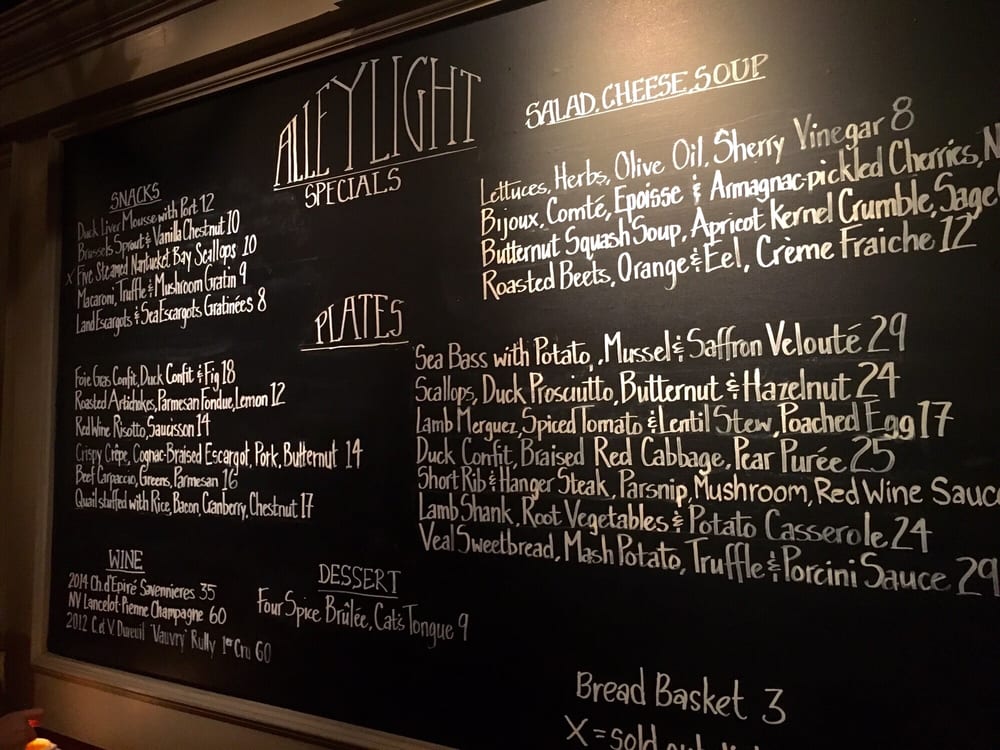 ALLEY LIGHT
SPECIALS
SNACKS
Duck Liver Mousse with Port 12
Brussels Sprout & Vanilla Chestnut 10
X Five Steamed Nantucket Bay Scallops 10
Macaroni, Truffle & Mushroom Gratin 9
Land Escargots & Sea Escargots Gratinées 8
SALAD, CHEESE, SOUP
Lettuces, Herbs, Olive Oil, Sherry Vinegar 8
Bijoux, Comté, Epoisse & Armagnac-pickled Cherries, N
Butternut Squash Soup, Apricot Kernel Crumble, Sage
Roasted Beets, Orange & Eel, Crème Fraiche 12
PLATES
Foie Gras Confit, Duck Confit & Fig 18
Roasted Artichokes, Parmesan Fondue, Lemon 12
Red Wine Risotto, Saucisson 14
Crispy Crêpe, Cognac-Braised Escargot, Pork, Butternut 14
Beef Carpaccio, Greens, Parmesan 16
Quail stuffed with Rice, Bacon, Cranberry, Chestnut 17
Sea Bass with Potato, , Mussel & Saffron Velouté 29
Scallops, Duck Prosciutto, Butternut & Hazelnut 24
Lamb Merguez, Spiced Tomato & Lentil Stew, Poached Egg 17
Duck Confit, Braised Red Cabbage, Pear Purée 25
Short Rib & Hanger Steak, Parsnip, Mushroom, Red Wine Sauc
Lamb Shank, Root Vegetables & Potato Casserole 24
Veal Sweetbread, Mash Potato, Truffle & Porcini Sauce 29
WINE
2014 Ch. d'Epiré Savennieres 35
NV Lancelot-Pienne Champagne 60
2012 C. et V. Dureuil "Vauvry" Rully 1er Cru 60
DESSERT
Four Spice Brûlée, Cat's Tongue 9
Bread Basket 3
X = sold out